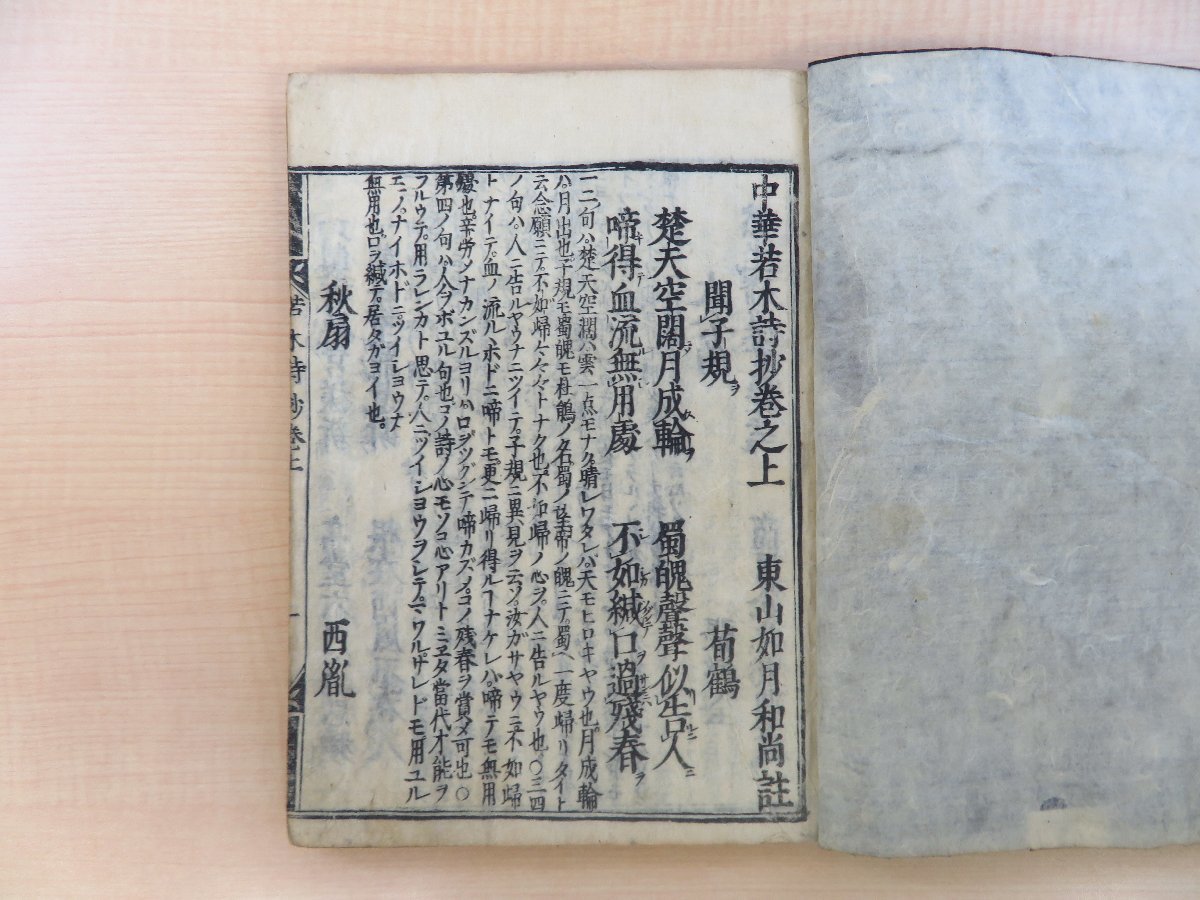 中華若木詩抄卷之上　東山如月和尚註
聞子規ヲ　荀鶴
楚天空闊月成輪　蜀魄聲聲似告人ニ
啼得血流無用處　不如緘口過殘春ヲ
一二ノ句ハ楚天空濶ハ雲一点モナク晴レワタレバ天モヒロキヤウ也月成輪
ハ月出也子規モ蜀魄モ杜鵑ノ名蜀ノ望帝ノ魄ニテ蜀ヘ一度歸リタイト
云念願ニテ不如歸々々々トナク也不如歸ノ心ヲ人ニ告ルヤウ也〇三四
ノ句ハ人ニ告ルヤウナニツイテ子規ニ異見ヲ云ソ汝ガサヤウニ不如歸
トナイテ血ノ流ルヽホドニ啼トモ更ニ歸リ得ルヿナケレバ啼テモ無用
也辛労ソナカンズルヨリハ口ヲツグンテ啼カズノコノ残春ヲ賞メ可也〇
第四ノ句ハ人ヲボユル句也コノ詩ノ心モソコ心アリトミヱタ當代才能ヲ
フルウテ用ラレンカト思テ人ニツイシヨウヲシテマワルザレドモ用ユル
エノナイホドニツイシヨウナ
無用也口ヲ緘テ居タガヨイ也
秋扇　西胤
若木詩抄卷上　一